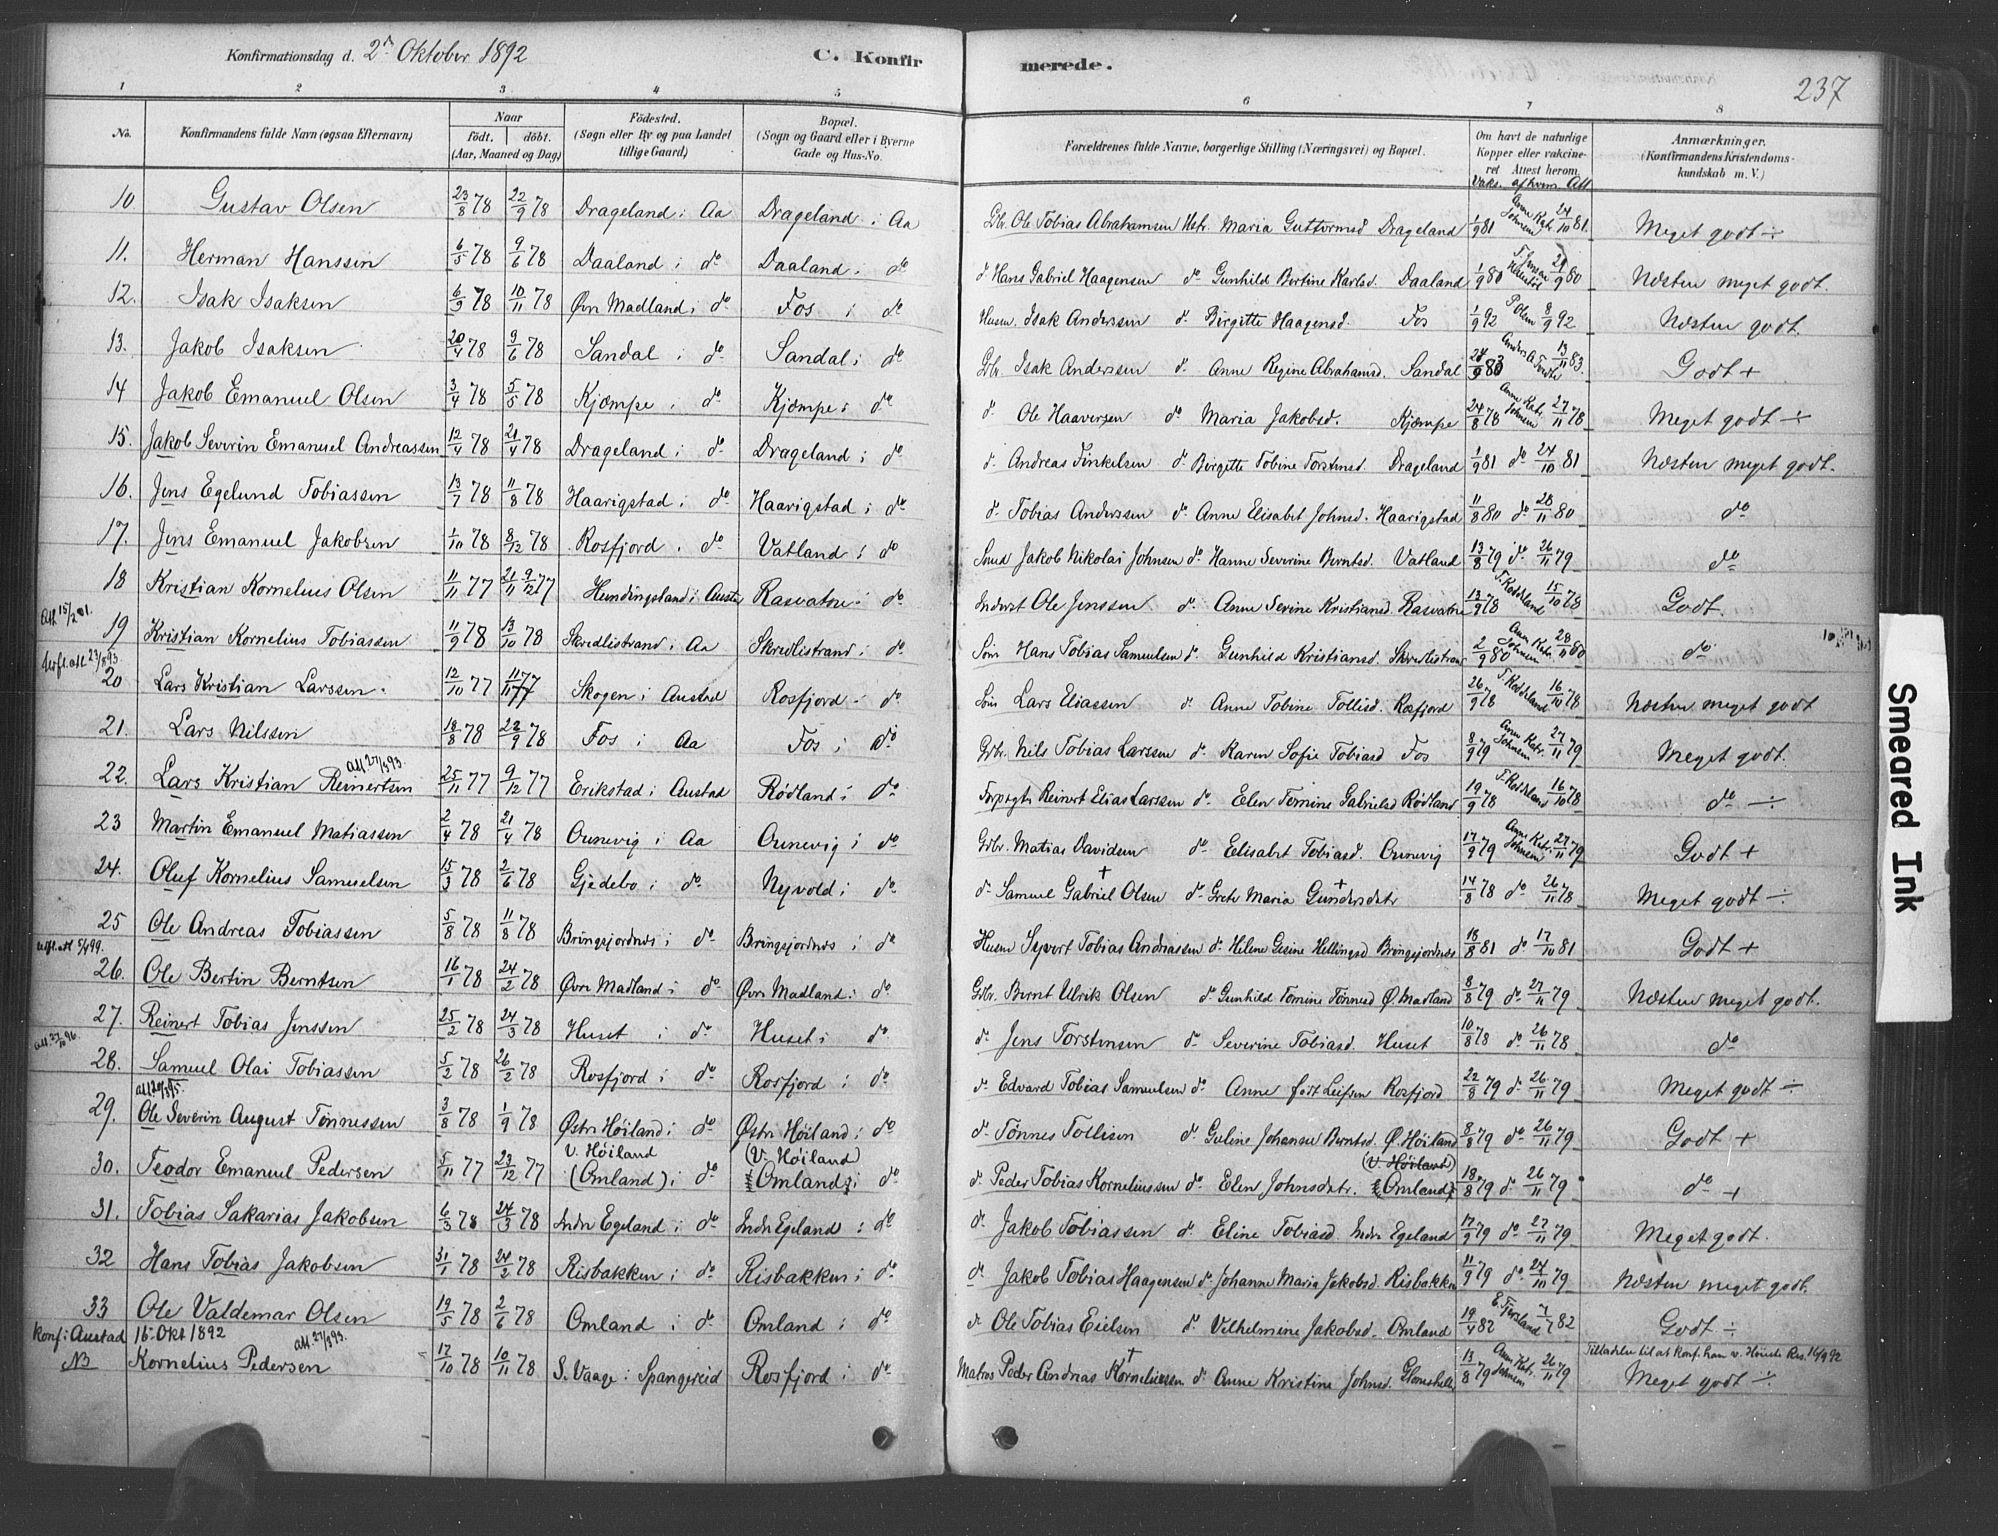 Konfirmationsdag d. 2den Oktober 1892 C. Konfir merede. 237
1 2 3 4 5 6 7 8
No. Konfirmandens fulde Navn (ogsaa Efternavn) Naar født. døbt. (Aar, Maaned og Dag) Födested. (Sogn eller By og paa Landet tillige Gaard) Bopæl. (Sogn og Gaard eller i Byerne Gade og Hus-No. Forældrenes fulde Navne, borgerlige Stilling (Næringsvei) og Bopæl. Om havt de naturlige Kopper eller vakcineret Attest herom. Vaks. af hvem Att Anmærkninger. (Konfirmandens Kristendomskundskab m. V.)
10 Gustav Olsen 23/8 78 22/9 78 Drageland i Aa Drageland i Aa Gbr. Ole Tobias Abrahamsen Hstr. Maria Guttormsd Drageland 1/9 81 Anne Katr. Johnsen 24/10 81. Meget godt ÷
11. Herman Hanssen 6/5 78 9/6 78 Daaland i do Daaland i do do Hans Gabriel Haagensen do Gunhild Bertine Karlsd. Daaland 1/9 80 29/9 80 Næsten meget godt.
12. Isak Isaksen 6/9 78 10/11 78 Øvr. Madland i do Fos i do Husm. Isak Anderssen do Birgitte Haagensd. Fos 1/9 92 P. Olsen 8/9 92 Næsten godt.
13. Jakob Isaksen 20/4 78 9/6 78 Sandal i do Sandal i do Gbr. Isak Anderssen do Anne Regine Abrahamsd. Sandal 24/9 83 13/11 83. Godt +
14 Jakob Emanuel Olsen 3/4 78 5/5 78 Kjæmpe i do Kjæmpe i do do Ole Haaversen do Maria Jakobsd. Kjæmpe 24/8 78 Anne Katr. Johnsen 27/11 78 Meget godt ÷
15. Jakob Severin Emanuel Andreassen 12/4 78 21/4 78 Drageland i do Drageland i do do Andreas Finkelsen do Birgitte Tobine Torstensd. Drageland 1/9 81 do 24/10 81 Næsten meget godt.
16. Jens Egelund Tobiassen 13/7 78 11/8 78 Haarigstad i do Haarigstad i do do Tobias Anderssen do Anne Elisabet Johnsd. Haarigstad 11/8 80 do 28/11 80 do
17. Jens Emanuel Jakobsen 1/10 78 8/12 78 Rosfjord i do Vatland i do Smed Jakob Nikolai Johnsen do Hanne Severine Berntsd. Vatland 13/8 79 do 26/11 79 do
18 Kristian Kornelius Olsen 11/11 77 9/12 77 Hundingsland i Austad Rasvatne i do Inderst Ole Jenssen do Anne Sevine Kristiansd. Rasvatne 12/9 78 T. Røddland 15/10 78 Godt.
Att. 15/2 01.
19 Kristian Kornelius Tobiassen 11/9 78 13/10 78 Skredlistrand i Aa Skredlistrand i do Søm Hans Tobias Samuelsen do Gunhild Kristiansd. Skredlistrand 2/9 80 Anne Katr. Johnsen 28/11 80 do
20 Lars Kristian Larssen 12/10 77 11/11 77 Skogen i Austad Rosfjord i do Søm Lars Eliassen do Anne Tobine Tollisd. Rosfjord 26/9 78 T. Røddland 16/10 78 Næsten meget godt
21. Lars Nilssen 18/8 78 22/9 78 Fos i Aa Fos i do Gbr. Nils Tobias Larssen do Karen Sofie Tobiasd Fos 8/9 79 Anne Katr. Johnsen 27/11 79 Meget godt.
Att. 27/3 93.
22. Lars Kristian Reinertsen 25/11 77 9/12 77 Erikstad i Austad Rødland i do Forpagter Reinert Elias Larssen do Elen Tomine Gabrielsd Rødland 19/9 78 T. Røddland 16/10 78 do ÷
23 Martin Emanuel Matiassen 2/4 78 21/4 78 Ounevig i Aa Ounevig i do Gbr. Matias Davidsen do Elisabet Tobiasd. Ounevig 17/9 79 Anne Katr. Johnsen 27/11 79 Godt +
24. Oluf Kornelius Samuelsen 15/3 78 2/6 78 Gjedebo i do Nyvold i do do Samuel Gabriel Olsen + do Grete Maria Gundersdatr + 14/8 78 do 26/11 78 Meget godt ÷
25 Ole Andreas Tobiassen 5/8 78 11/8 78 Bringsjordnes i do Bringsjordnes i do Husm Syvert Tobias Andreassen do Helene Gesine Hellingsd Bringsjordnes 18/8 81 do 17/10 81 Godt +
26. Ole Bertin Berntsen 16/1 78 24/2 78 Øvr. Madland i do Øvr. Madland i do Gbr. Bernt Ulrik Olsen do Gunhild Tomine Tønnesd Ø. Madland 8/8 79 do 27/11 79 Næsten meget godt.
27. Reinert Tobias Jenssen 25/2 78 24/3 78 Huset i do Huset i do do Jens Torstensen do Severine Tobiasd. Huset 10/8 78 do 26/11 78 do
Att. 27/10 96.
28. Samuel Olai Tobiassen 5/2 78 26/2 78 Rosfjord i do Rosfjord i do do Edvard Tobias Samuelsen do Anne født Leifsen Rosfjord 22/8 79 do 26/11 79 Meget godt ÷
29. Ole Severin August Tønnessen 3/8 78 1/9 78 Østr. Høiland i do Østr. Høiland i do do Tønnes Tollisen do Guline Johanne Berntsd. Ø. Høiland 8/8 79 do 26/11 79 Godt +
30. Teodor Emanuel Pedersen 5/11 77 23/12 77 V. Høiland (Omland) i do (V. Høiland) (Omland) i do do Peder Tobias Korneliussen do Elen Johnsdatr. (V. Høiland) (Omland) 18/8 79 do 26/11 79 do +
31. Tobias Sakarias Jakobsen 6/3 78 24/3 78 Indr. Egeland i do Indr Egeland i do do Jakob Tobiassen do Eline Tobiasd. Indr Egeland 17/9 79 do 27/11 79 Meget godt.
32 Hans Tobias Jakobsen 31/1 78 24/2 78 Risbakken i do Risbakken i do do Jakob Tobias Haagensen do Johanne Maria Jakobsd. Risbakken 11/9 79 do 24/10 79 Næsten meget godt.
33 Ole Valdemar Olsen 19/5 78 2/6 78 Omland i do Omland i do do Ole Tobias Eielsen do Vilhelmine Jakobsd. Omland 19/4 82 E. Fjersland 7/7 82 Godt ÷
Konf. i Austad 16. Okt 1892 Att. 27/3 93. Tilladelse til at konf. ham
NB Kornelius Pedersen 17/10 78 10/11 78 S. Vaage i Spangereid Rosfjord i do Matros Peder Andreas Korneliussen + do Anne Kristine Johnsd. 13/8 79 Anne Katr. Johnsen 26/11 79 Meget godt ÷
Smeared Ink